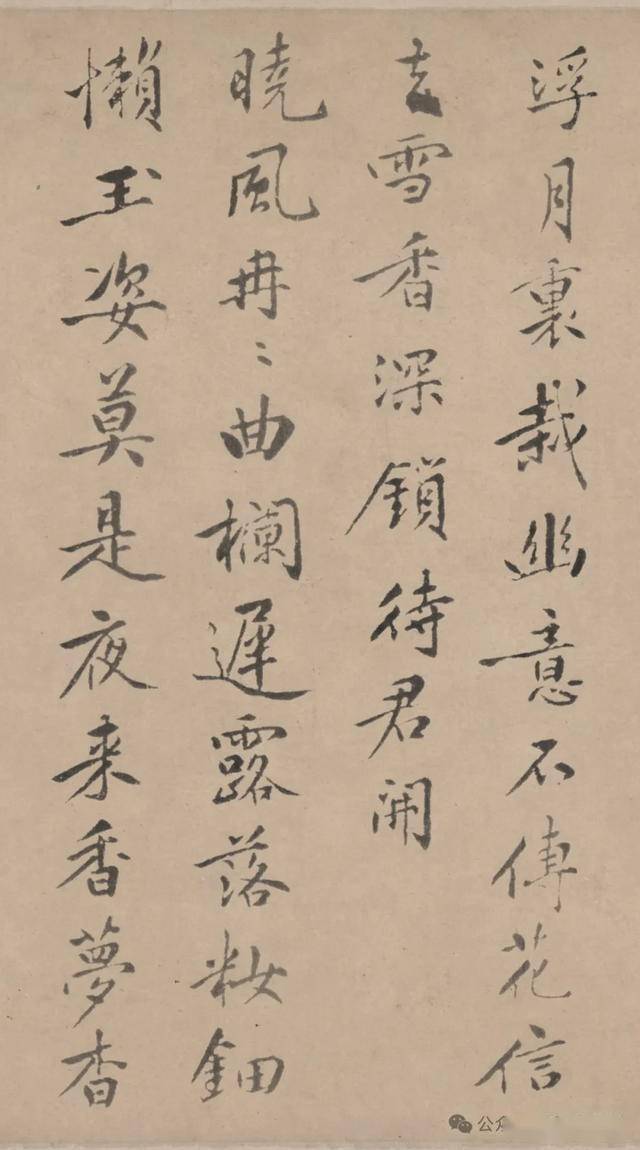 浮月裏栽幽意不傳花信
去雪香深鎖待君開
曉風冉〻曲欄遲露落籹鈿
懶玉姿莫是夜来香夢杳
公众